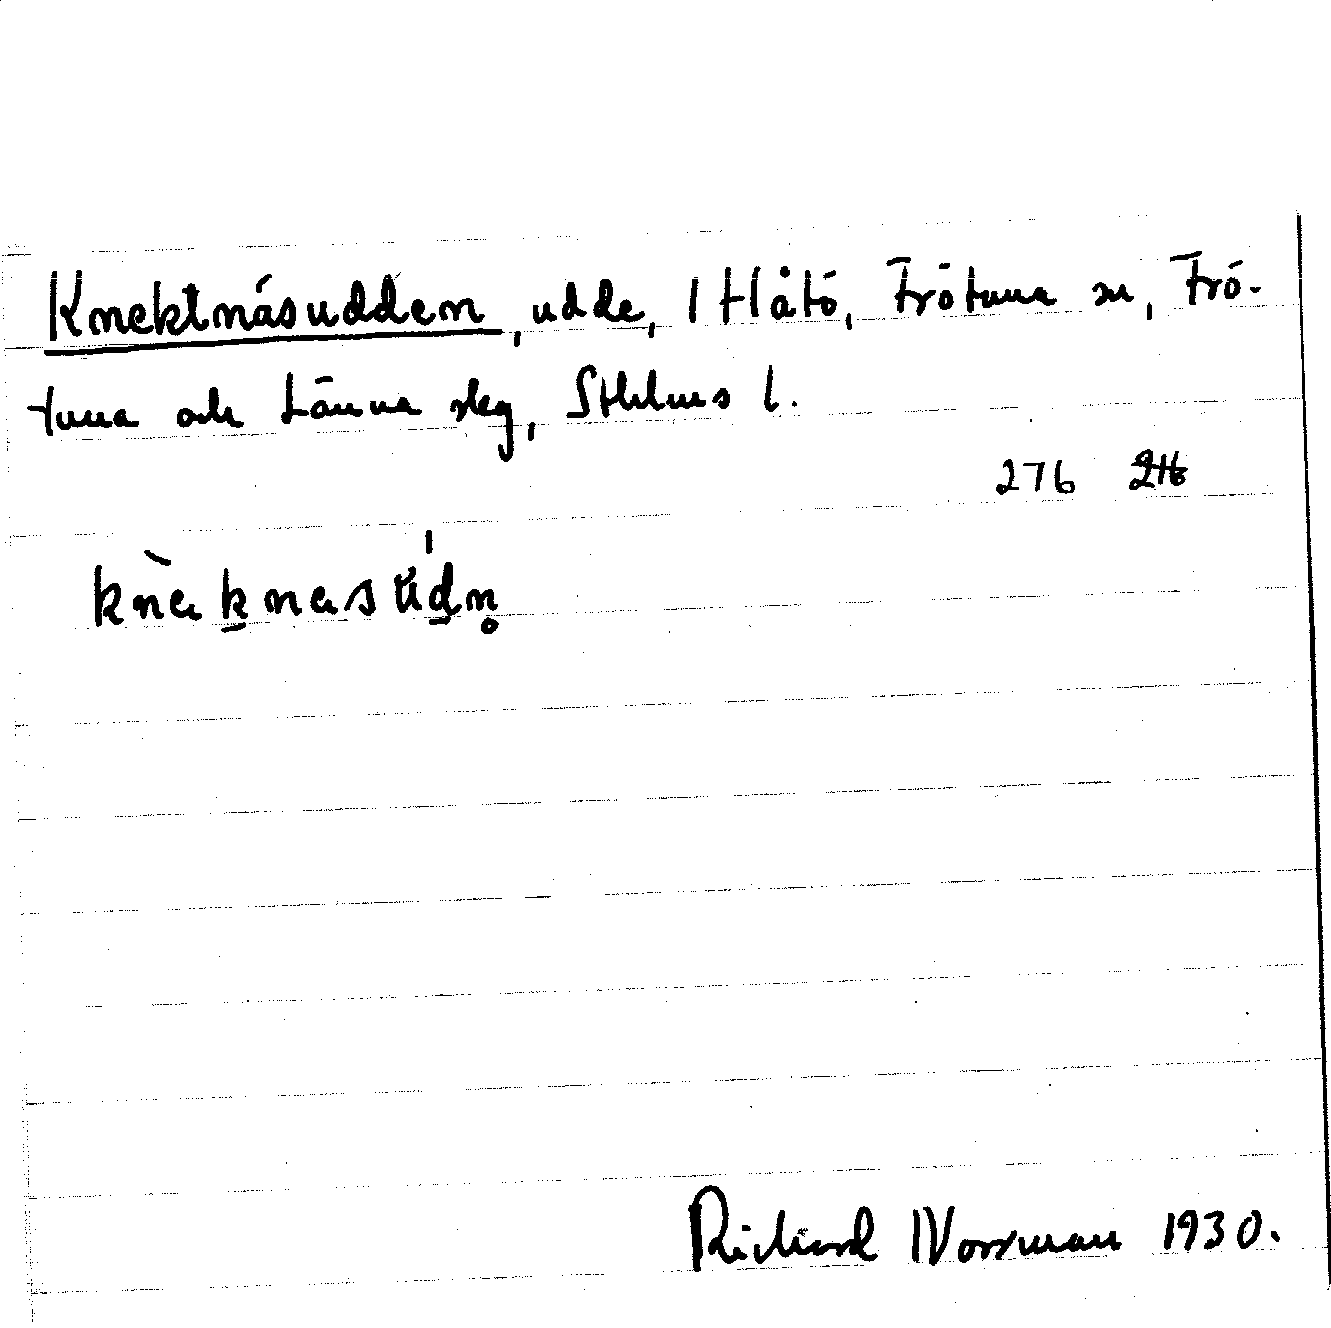 Knektnäsudden, udde, I Håtö, Frötuna sn, Frö-
tuna och Länna skg, Sthlms l.
276
Richard Norrman 1930.